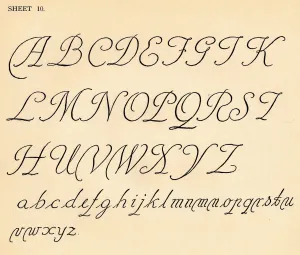 SHEET 10.
ABCDEFGIK
LMNOPQRST
HUVWXYZ
abcdefghijklmnmnopqrstu
vwxyz